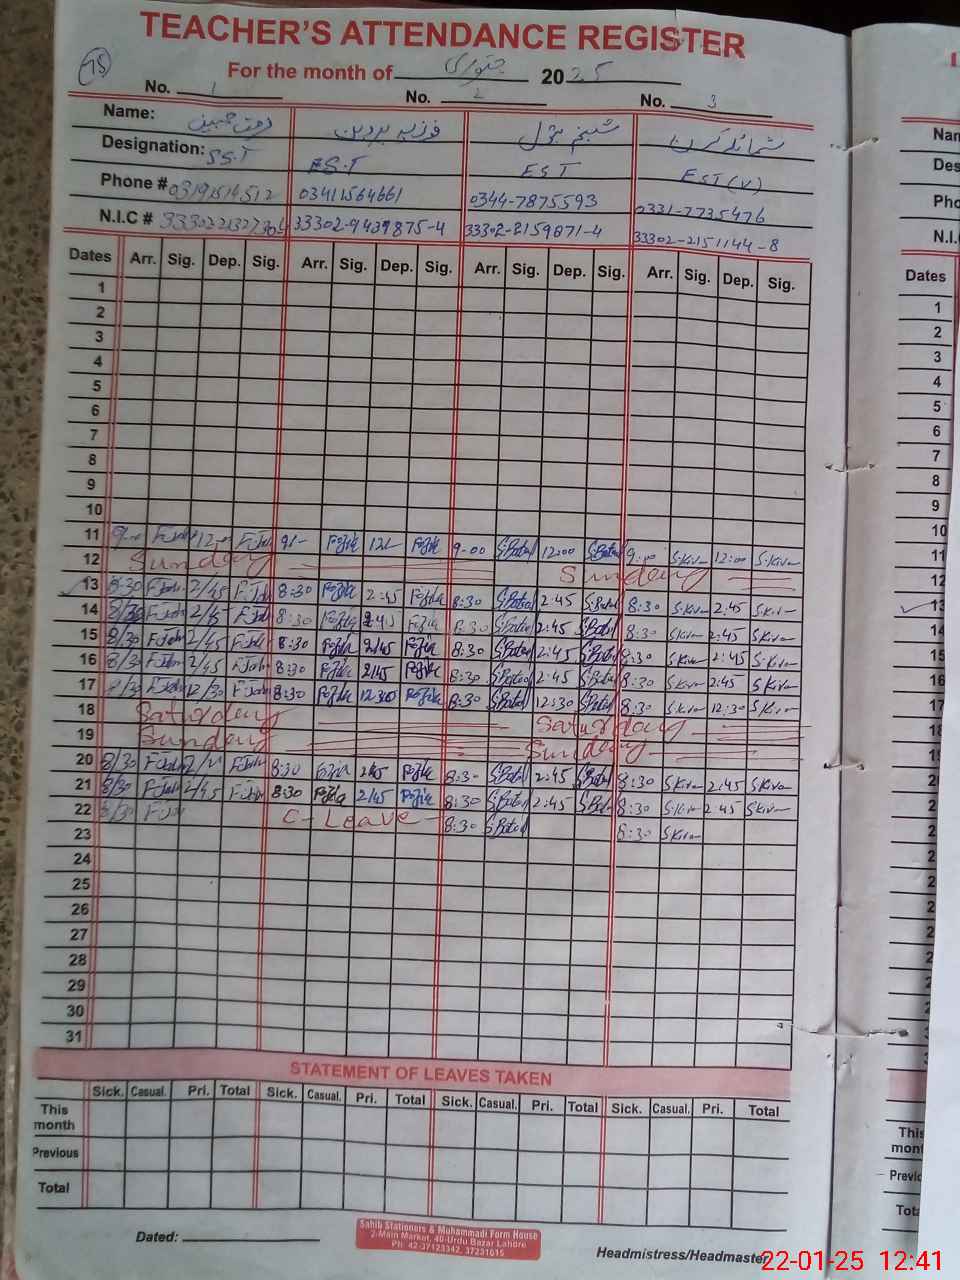 TEACHER'S ATTENDANCE REGISTER
75
For the month of جنوری 2025
No. 1 No. 2 No. 3
Name: فوزیہ پروین شبنم بتول شمائلہ کرن
Designation: SS.T ES.T EST EST(V)
Phone # 03411564661 0344-7875593 0331-7735476
N.I.C # 33302-9439875-4 33302-2159871-4 33302-2151144-8
Dates Arr. Sig. Dep. Sig. Arr. Sig. Dep. Sig. Arr. Sig. Dep. Sig. Arr. Sig. Dep. Sig.
1
2
3
4
5
6
7
8
9
10
11 9- 12- 9/- Fozia 12/- Fozia 9-00 S.Batool 12:00 S.Batool 9:00 S.Kiran 12:00 S.Kiran
12 Sunday Sunday
13 8:30 2/45 8:30 Fozia 2:45 Fozia 8:30 S.Batool 2:45 S.Batool 8:30 S.Kiran 2:45 S.Kiran
14 8/30 2/45 8:30 Fozia 2:45 Fozia 8:30 S.Batool 2:45 S.Batool 8:30 S.Kiran 2:45 S.Kiran
15 8/30 2/45 8:30 Fozia 2/45 Fozia 8:30 S.Batool 2:45 S.Batool 8:30 S.Kiran 2:45 S.Kiran
16 8/30 2/45 8:30 Fozia 2/45 Fozia 8:30 S.Batool 2:45 S.Batool 8:30 S.Kiran 2:45 S.Kiran
17 8/30 12/30 8:30 Fozia 12:30 Fozia 8:30 S.Batool 12:30 S.Batool 8:30 S.Kiran 12:30 S.Kiran
18 Saturday Saturday
19 Sunday Sunday
20 8/30 8:30 Fozia 2/45 Fozia 8:30 S.Batool 2:45 S.Batool 8:30 S.Kiran 2:45 S.Kiran
21 8/30 2/45 8:30 Fozia 2/45 Fozia 8:30 S.Batool 2:45 S.Batool 8:30 S.Kiran 2:45 S.Kiran
22 8/30 C-Leave 8:30 S.Batool 8:30 S.Kiran
23
24
25
26
27
28
29
30
31
STATEMENT OF LEAVES TAKEN
Sick. Casual. Pri. Total Sick. Casual. Pri. Total Sick. Casual. Pri. Total Sick. Casual. Pri. Total
This month
Previous
Total
Dated:
Sahib Stationers & Muhammadi Form House
2-Main Market, 40-Urdu Bazar Lahore
Ph: 42-37123342, 37231015
Headmistress/Headmaster
22-01-25 12:41
Dates
1
2
3
4
5
6
7
8
9
10
11
12
13
14
15
16
17